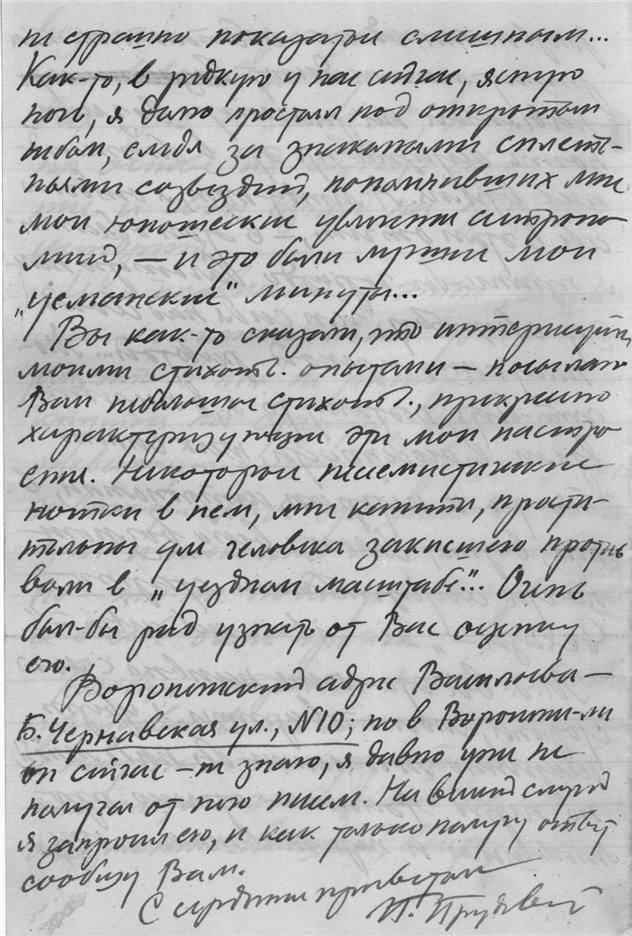 не страшно показаться смешным...
Как-то, в редкую у нас сейчас, ясную
ночь, я долго простоял под открытым
небом, следя за знакомыми сплете-
ньями созвездий, напомнивших мне
мои юношеские увлечения астроно-
мией, — и это были лучшие мои
„усманские" минуты...
Вы как-то сказали, что интересуетесь
моими стихотв. опытами — посылаю
Вам небольшое стихотв., прекрасно
характеризующее эти мои настро-
ения. Некоторые пессимистические
нотки в нем, мне кажется, прости-
тельны для человека закисшего против
воли в „уездном масштабе"... Очень
был-бы рад узнать от Вас оценку
его.
Воронежский адрес Васильева —
Б. Чернавская ул., N10; но в Воронеже-ли
он сейчас — не знаю, я давно уже не
получал от него писем. На всякий случай
я запросил его, и как только получу ответ
сообщу Вам.
С сердечным приветом